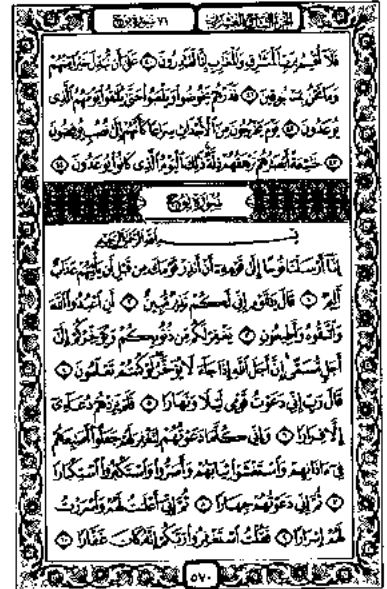 الجزء التاسع والعشرون
٧١ سورة نوح
فَلَا أُقْسِمُ بِرَبِّ الْمَشَٰرِقِ وَالْمَغَٰرِبِ إِنَّا لَقَٰدِرُونَ ٤٠ عَلَىٰ أَن نُّبَدِّلَ خَيْرًا مِّنْهُمْ
وَمَا نَحْنُ بِمَسْبُوقِينَ ٤١ فَذَرْهُمْ يَخُوضُوا وَيَلْعَبُوا حَتَّىٰ يُلَٰقُوا يَوْمَهُمُ الَّذِي
يُوعَدُونَ ٤٢ يَوْمَ يَخْرُجُونَ مِنَ الْأَجْدَاثِ سِرَاعًا كَأَنَّهُمْ إِلَىٰ نُصُبٍ يُوفِضُونَ
٤٣ خَٰشِعَةً أَبْصَٰرُهُمْ تَرْهَقُهُمْ ذِلَّةٌ ذَٰلِكَ الْيَوْمُ الَّذِي كَانُوا يُوعَدُونَ ٤٤
سُورَةُ نُوحٍ
بِسْمِ اللَّهِ الرَّحْمَٰنِ الرَّحِيمِ
إِنَّا أَرْسَلْنَا نُوحًا إِلَىٰ قَوْمِهِ أَنْ أَنذِرْ قَوْمَكَ مِن قَبْلِ أَن يَأْتِيَهُمْ عَذَابٌ
أَلِيمٌ ١ قَالَ يَٰقَوْمِ إِنِّي لَكُمْ نَذِيرٌ مُّبِينٌ ٢ أَنِ اعْبُدُوا اللَّهَ
وَاتَّقُوهُ وَأَطِيعُونِ ٣ يَغْفِرْ لَكُم مِّن ذُنُوبِكُمْ وَيُؤَخِّرْكُمْ إِلَىٰ
أَجَلٍ مُّسَمًّى إِنَّ أَجَلَ اللَّهِ إِذَا جَاءَ لَا يُؤَخَّرُ لَوْ كُنتُمْ تَعْلَمُونَ ٤
قَالَ رَبِّ إِنِّي دَعَوْتُ قَوْمِي لَيْلًا وَنَهَارًا ٥ فَلَمْ يَزِدْهُمْ دُعَاءِي
إِلَّا فِرَارًا ٦ وَإِنِّي كُلَّمَا دَعَوْتُهُمْ لِتَغْفِرَ لَهُمْ جَعَلُوا أَصَٰبِعَهُمْ
فِي ءَاذَانِهِمْ وَاسْتَغْشَوْا ثِيَابَهُمْ وَأَصَرُّوا وَاسْتَكْبَرُوا اسْتِكْبَارًا
٧ ثُمَّ إِنِّي دَعَوْتُهُمْ جِهَارًا ٨ ثُمَّ إِنِّي أَعْلَنتُ لَهُمْ وَأَسْرَرْتُ
لَهُمْ إِسْرَارًا ٩ فَقُلْتُ اسْتَغْفِرُوا رَبَّكُمْ إِنَّهُ كَانَ غَفَّارًا ١٠
٥٧٠